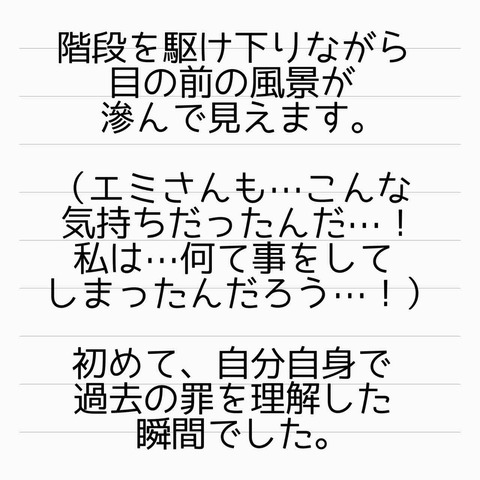 階段を駆け下りながら
目の前の風景が
滲んで見えます。
（エミさんも…こんな
気持ちだったんだ…！
私は…何て事をして
しまったんだろう…！）
初めて、自分自身で
過去の罪を理解した
瞬間でした。